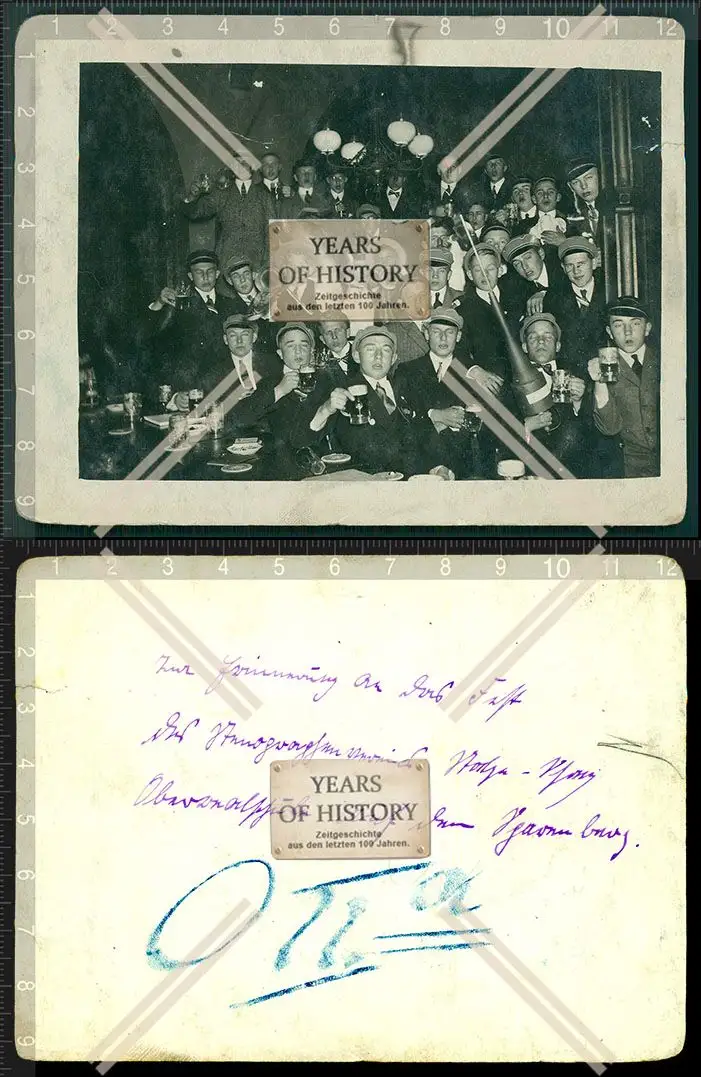 1 2 3 4 5 6 7 8 9 10 11 12
1
2
3
4
5
6
7
8
9
YEARS
OF HISTORY
Zeitgeschichte
aus den letzten 100 Jahren.
1 2 3 4 5 6 7 8 9 10 11 12
2
3
4
5
6
7
8
9
Zur Erinnerung an das Fest
des Stenographenvereins
YEARS
OF HISTORY
Zeitgeschichte
aus den letzten 100 Jahren.
auf dem Sparenberg.
O II a